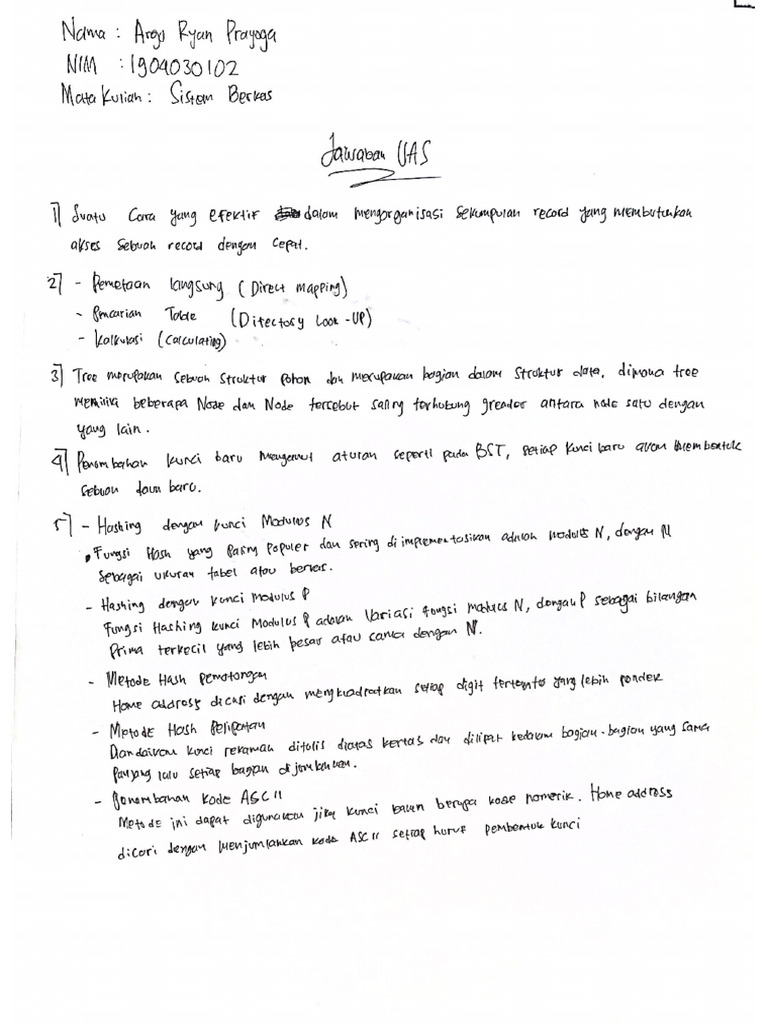 Nama : Argo Ryan Prayoga
NIM : 1904030102
Mata Kuliah : Sistem Berkas
Jawaban UAS
1] Suatu Cara yang efektif dalam mengorganisasi sekumpulan record yang membutuhkan
akses sebuah record dengan cepat.
2] - Pemetaan langsung (Direct mapping)
- Pencarian Table (Ditectory Look-UP)
- Kalkulasi (Calculating)
3] Tree merupakan sebuah struktur pohon dan merupakan bagian dalam struktur data, dimana tree
memiliki beberapa Node dan Node tersebut saling terhubung antara node satu dengan
yang lain.
4] Penambahan kunci baru mengamut aturan seperti pada BST, setiap kunci baru akan membentuk
sebuah daun baru.
5] - Hashing dengan kunci Modulus N
Fungsi Hash yang paling populer dan sering di implementasikan adalah modulus N, dengan N
sebagai ukuran tabel atau berkas.
- Hashing dengan kunci modulus P
Fungsi Hashing kunci Modulus P adalah Variasi fungsi modulus N, dengan P sebagai bilangan
Prima terkecil yang lebih besar atau sama dengan N.
- Metode Hash Pemotongan
Home address dicari dengan mengkuadratkan setiap digit tertentu yang lebih pendek
- Metode Hash Pelipatan
Diandaikan kunci rekaman ditulis diatas kertas dan dilipat kedalam bagian-bagian yang sama
Panjang lalu setiap bagian dijumlahkan.
- Penambahan Kode ASCII
Metode ini dapat digunakan jika kunci bukan berupa kode nomerik. Home address
dicari dengan menjumlahkan kode ASCII setiap huruf pembentuk kunci